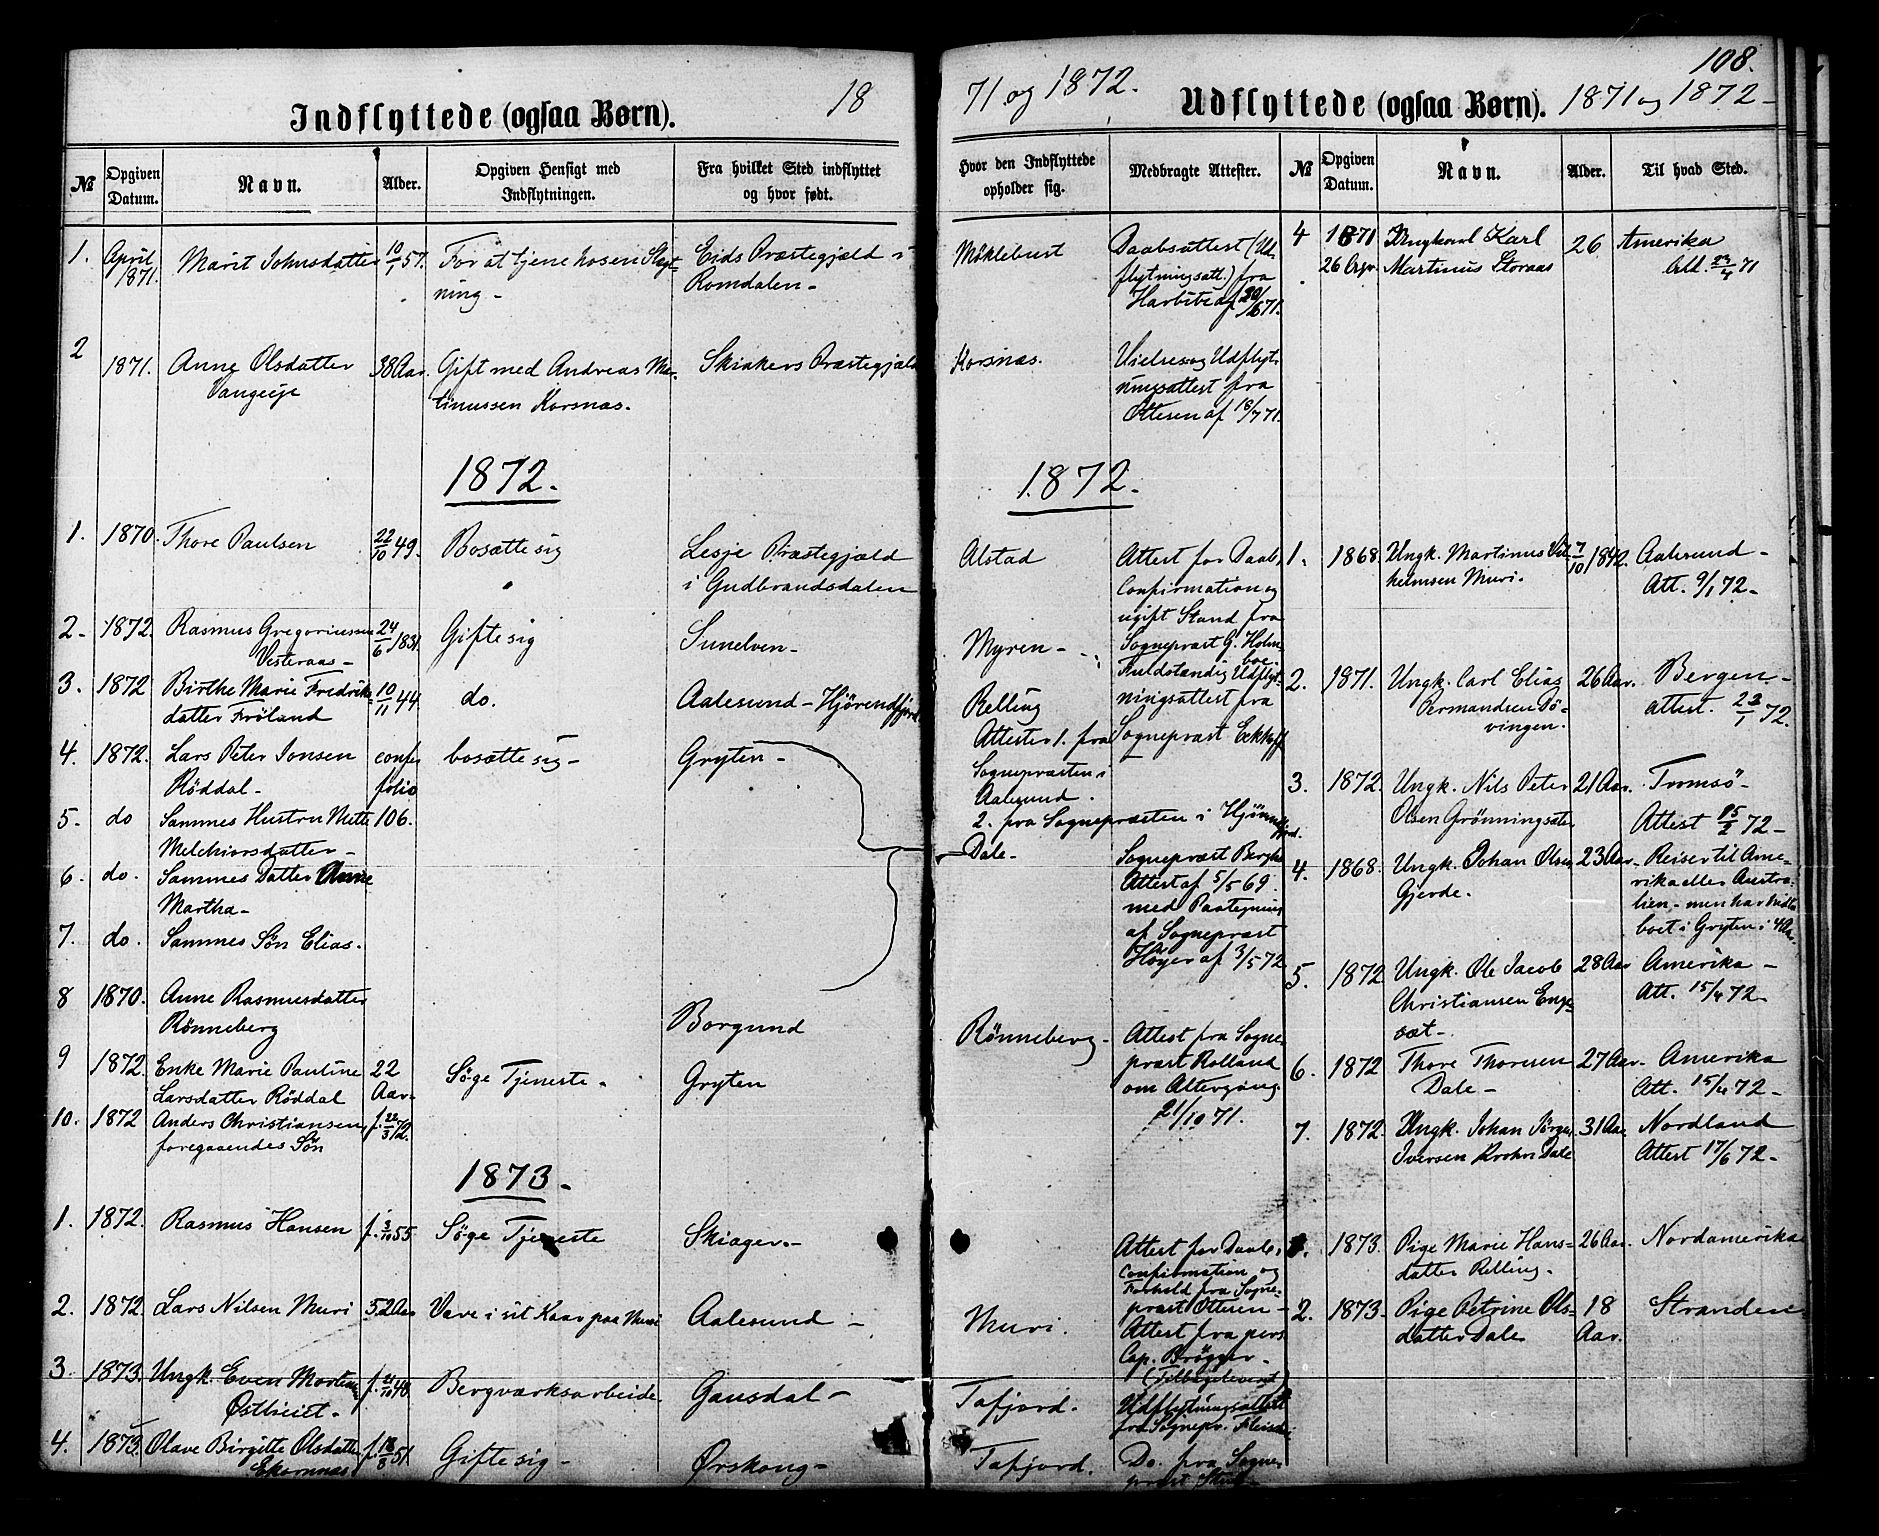 108.
Indflyttede (ogsaa Børn). 18
71 og 1872.
Udflyttede (ogsaa Børn). 1871 og 1872-
No
Opgiven Datum.
Navn.
Alder.
Opgiven Hensigt med Indflytningen.
Fra hvilket Sted indflyttet og hvor født.
Hvor den Indflyttede opholder sig.
Medbragte Attester.
No
Opgiven Datum.
Navn.
Alder.
Til hvad Sted.
1. April 1871. Marit Johnsdatter 10/1 57. For at tjene hos en Slægt-
ning - Eids Præstegjæld i
Romdalen -
Möklebust
Daabsattest (Ud-
flytningsatt.) fra
2 1871. Anne Olsdatter 38 Aar. Gift med Andreas Ma-
tinussen Korsnæs. Skiakers Præstegjæld
Korsnæs. Vielses og Udflyt-
ningsattest fra
Ottesen af 18/7 71.
1872.
1. 1870. Thore Paulsen 22/10 49. Bosætte sig Lesje Præstegjæld
i Gudbrandsdalen
Alstad Attest for Daab,
Confirmation og
ugift Stand fra
Sognepræst G. Holm-
boe
2. 1872. Rasmus Gregoriussen 24/6 1831. Gifte sig Sunelven -
Vesteraas -
Myren -
Fuldstændig Udflyt-
ningsattest fra
Sognepræst Eckhoff
3. 1872 Birthe Marie Fredriks- 10/11 44. do. Aalesund - Hjørendfjord
datter Fröland
Relling
Attester 1. fra
Sognepræsten i
Aalesund.
2. fra Sognepræsten i
4. 1872. Lars Peter Jonsen confr bosætte sig - Gryten -
Röddal - folio
5. do Sammes Hustru Mette 106.
Melchiorsdatter -
6. do. Sammes Datter Anne
Martha -
7. do. Sammes Sön Elias.
Dale - Sognepræst Berghs
Attest af 5/5 69.
med Paategning
af Sognepræst
Höyer af 3/5 72
8 1870. Anne Rasmusdatter
Rönneberg Borgund
Rönneberg - Attest fra Sogne-
præst Rolland
om Altergang
21/10 71.
9 1872. Enke Marie Pauline 22 Aar - Söge Tjeneste. Gryten
Larsdatter Röddal
10. 1872 Anders Christiansen, f. 22/3 72.
foregaaendes Sön
1873.
1. 1872. Rasmus Hansen f. 3/10 55. Söge Tjeneste Skiager. -
Attest for Daab,
Confirmation og
Forhold fra Sogne-
præst Ottesen -
2. 1872. Lars Nilsen Muri 52 Aar Være i sit Kaar paa Muri Aalesund -
Muri. Attest fra pers
Cap. Brögger.
(Tilbageleveret
3 1873. Ungk. Even Mortens Bergværksarbeide Gausdal -
Tafjord. Udflytningsattest
fra Sognepr.
4. 1873. Olave Birgitte Olsdatter f. 18/8 51. Gifte sig - Ørskoug -
Ekornnæs
Tafjord. Do. fra Sogne-
præst
4 1871 Ungkarl Karl 26 Amerika
Martinus Storaas Att. 23/4 71
1872.
1. 1868. Ungk. Martinus Vil- 7/10 1842. Aalesund -
helmsen Muri. Att. 9/1 72 -
2. 1871. Ungk. Carl Elias 26 Aar. Bergen -
attest. 23/1 72.
3. 1872. Ungk. Nils Peter 21 Aar. Tromsö -
Olsen Grönningsæter Attest 15/3 72 -
4. 1868. Ungk. Johan Olsen 23 Aar. Reiser til Ame-
Gjerde. rika eller Austra-
lien - men har hidtil
boet i Gryten i 4 Aar.
5. 1872 Ungk. Ole Jacob 28 Aar Amerika -
Christiansen Eng- Att. 15/4 72 -
sæt -
6. 1872 Thore Thoresen 27 Aar. Amerika
Dale - Att. 15/4 72 -
7. 1872. Ungk. Johan Jörgen 31 Aar Nordland
Iversen Krohn Dale Attest 17/6 72 -
1. 1873. Pige Marie Hans- 26 Aar. Nordamerika
datter Relling.
2. 1873. Pige Petrine Ols- 18 Aar. Stranden
datter Dale